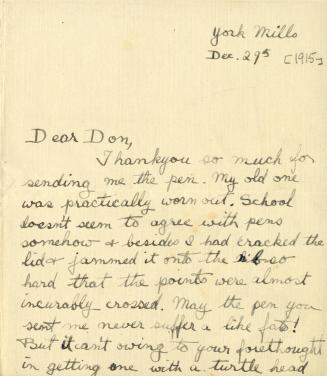 York Mills
Dec. 29th [1915]
Dear Don,
Thankyou so much for
sending me the pen. My old one
was practically worn out. School
doesn't seem to agree with pens
somehow & besides I had cracked the
lid & jammed it onto the nib so
hard that the points were almost
incurably crossed. May the pen you
sent me never suffer a like fate!
But it can't owing to your forethought
in getting one with a turtle head